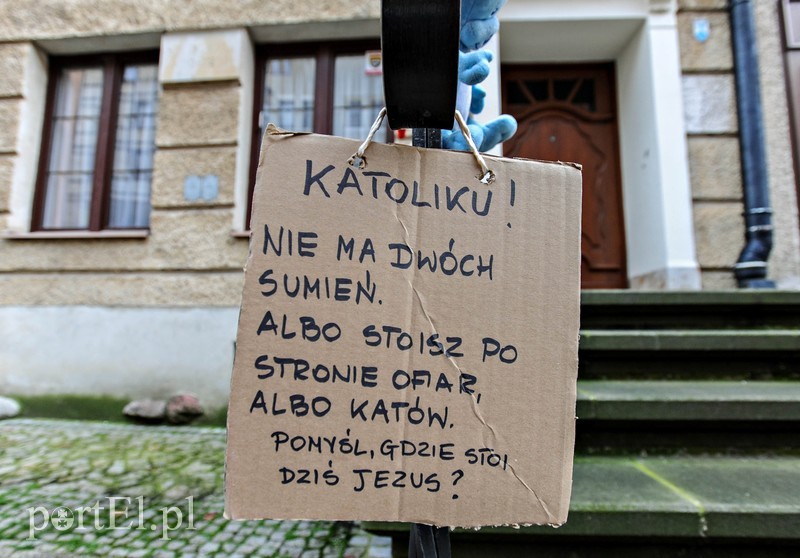 KATOLIKU!
NIE MA DWÓCH
SUMIEŃ.
ALBO STOISZ PO
STRONIE OFIAR,
ALBO KATÓW.
POMYŚL, GDZIE STOI
DZIŚ JEZUS?
portEl.pl